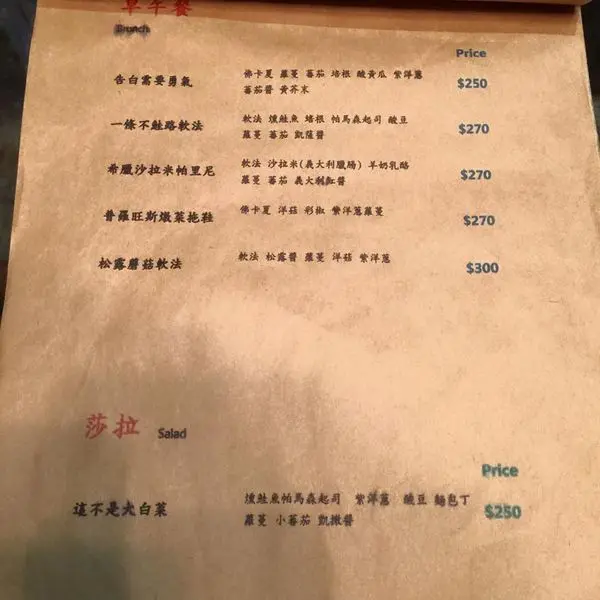 早午餐
Brunch
Price
告白需要勇氣 佛卡夏 蘿蔓 蕃茄 培根 酸黃瓜 紫洋蔥 $250
蕃茄醬 黃芥末
一條不鮭路軟法 軟法 燻鮭魚 培根 帕馬森起司 酸豆 $270
蘿蔓 蕃茄 凱薩醬
希臘沙拉米帕里尼 軟法 沙拉米(義大利臘腸) 羊奶乳酪 $270
蘿蔓 蕃茄 義大利紅醬
普羅旺斯燉菜拖鞋 佛卡夏 洋菇 彩椒 紫洋蔥蘿蔓 $270
松露蘑菇軟法 軟法 松露醬 蘿蔓 洋菇 紫洋蔥 $300
莎拉 Salad
Price
這不是大白菜 燻鮭魚帕馬森起司 紫洋蔥 酸豆 麵包丁 $250
蘿蔓 小蕃茄 凱撒醬